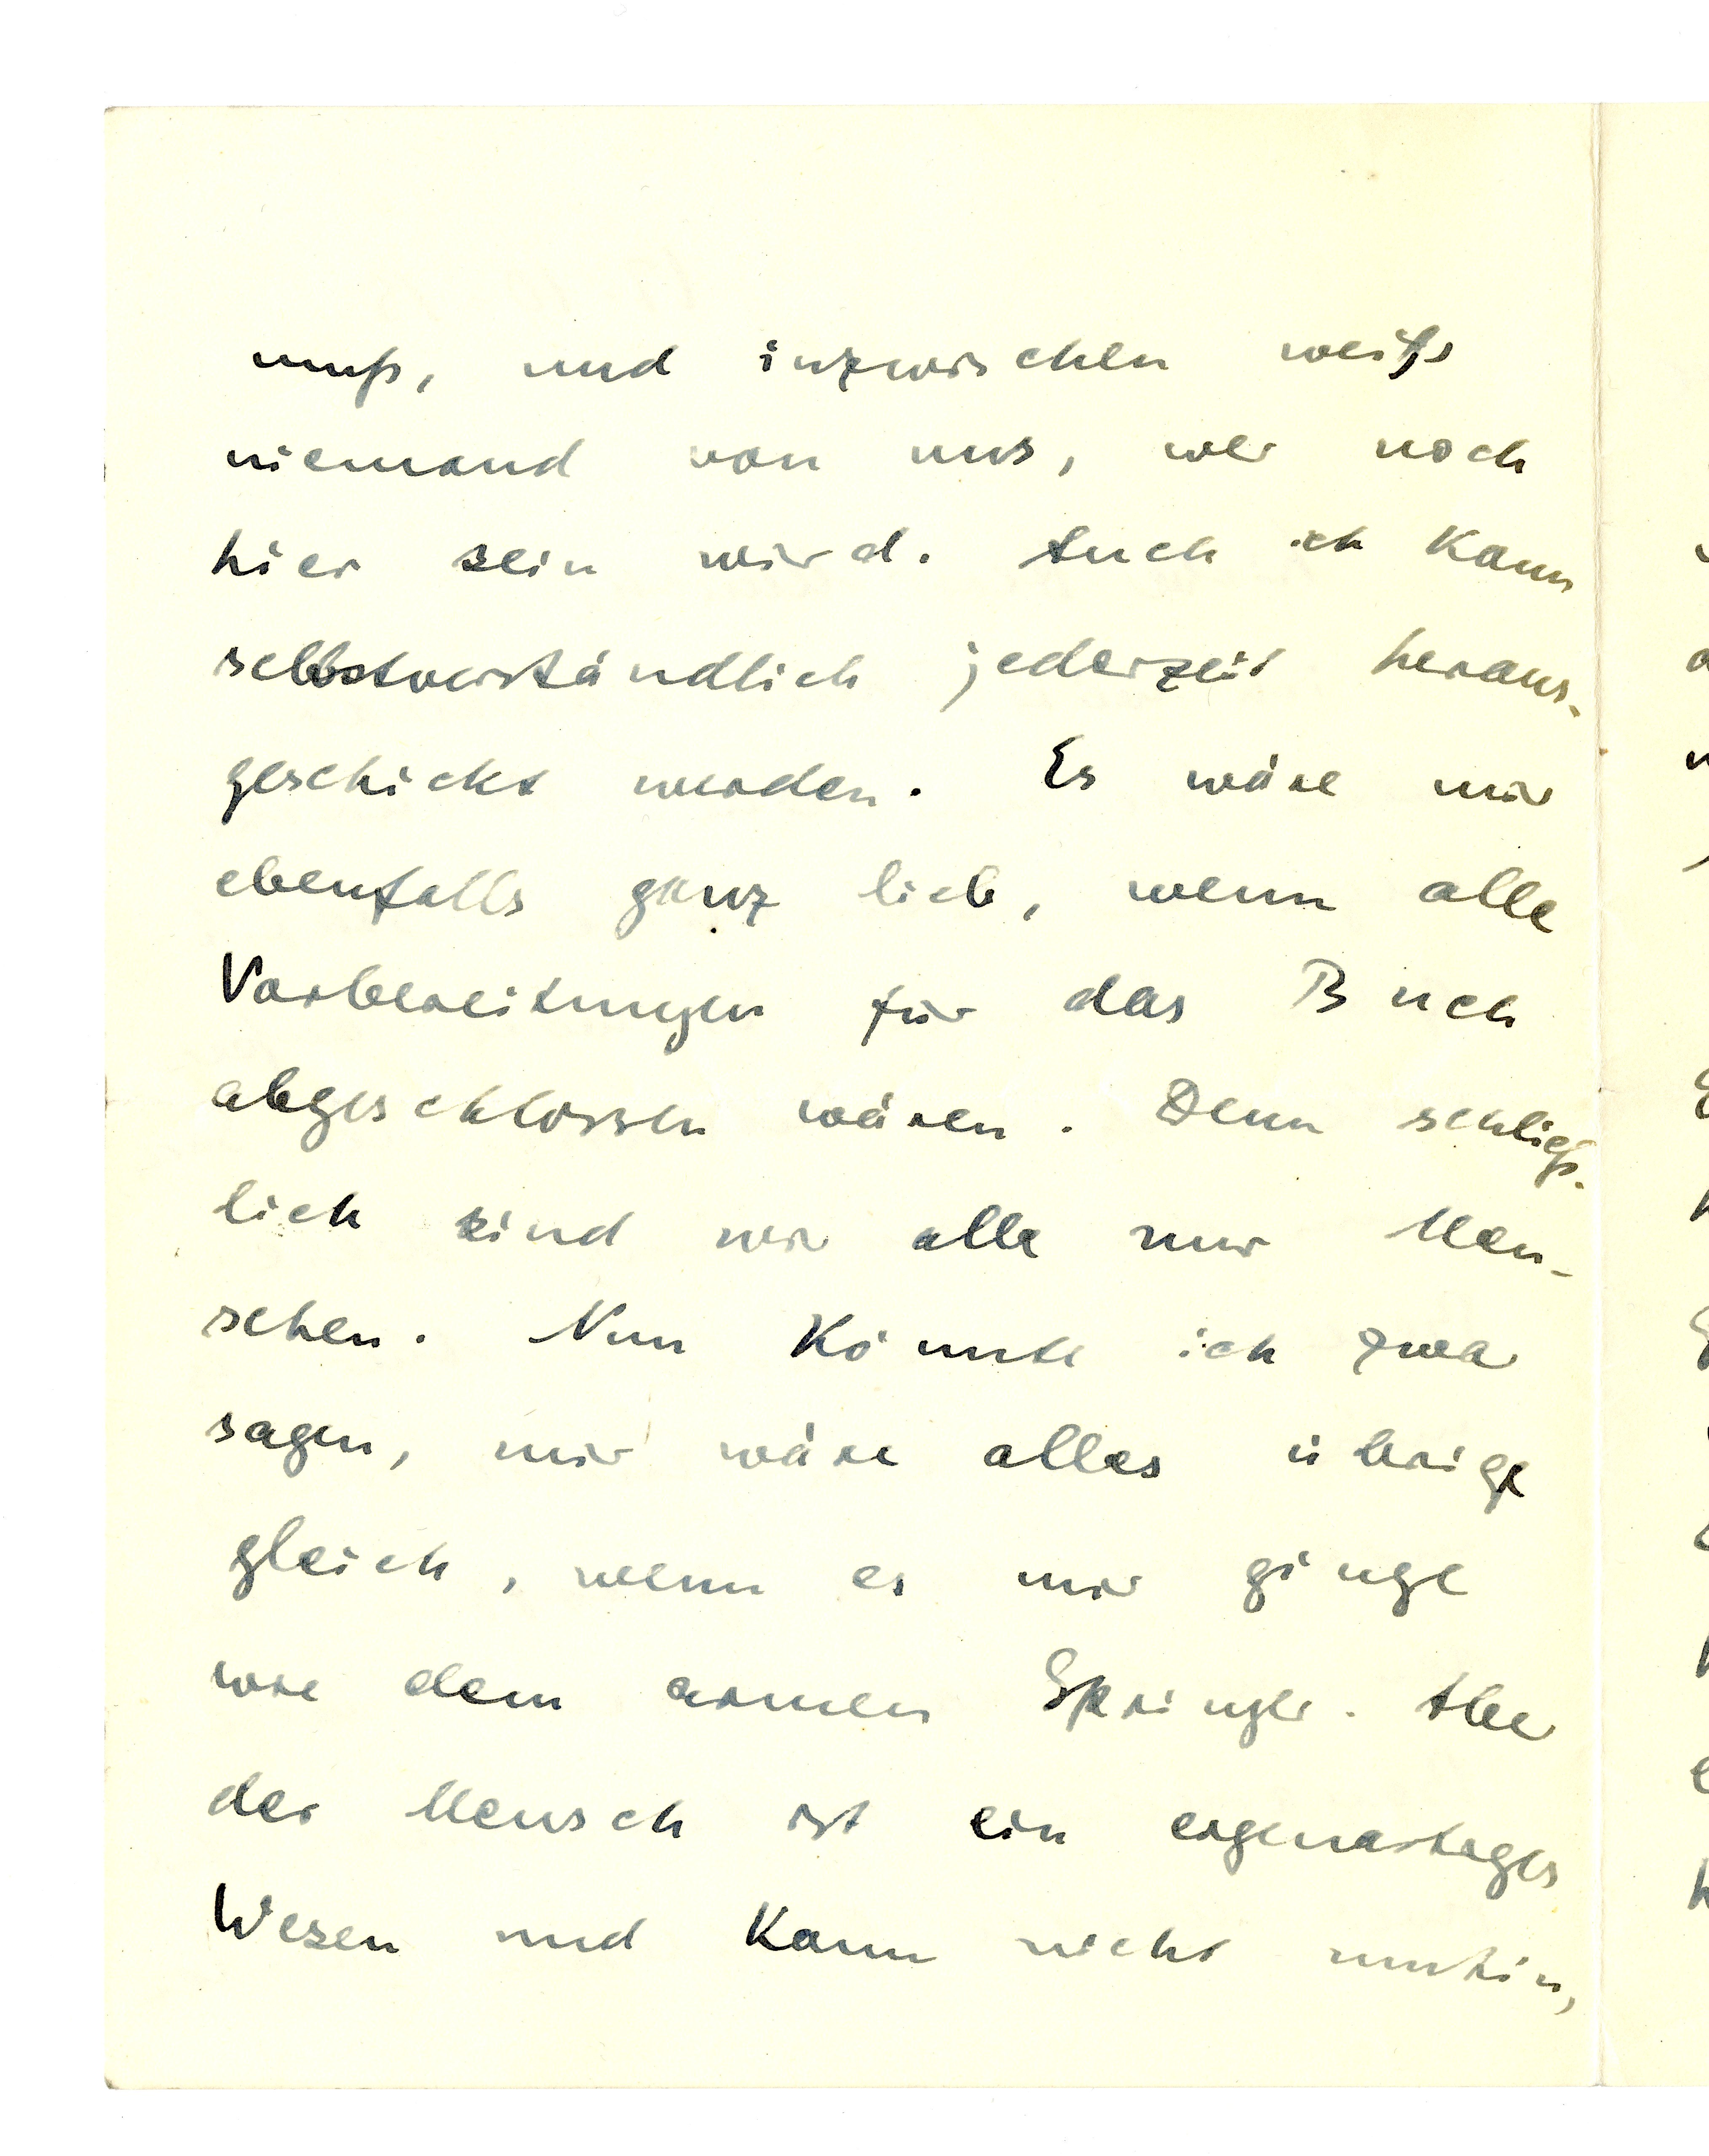 muß, und inzwischen weiß
niemand von uns, wer noch
hier sein wird. Auch ich kann
selbstverständlich jederzeit heraus-
geschickt werden. Es wäre mir
ebenfalls ganz lieb, wenn alle
Vorbereitungen für das Buch
abgeschlossen wären. Denn schließ-
lich sind wir alle nur Men-
schen. Nun könnte ich zwar
sagen, mir wäre alles übrige
gleich, wenn es mir ginge
wie dem armen Springer. Aber
der Mensch ist ein eigenartiges
Wesen und kann nicht umhin,